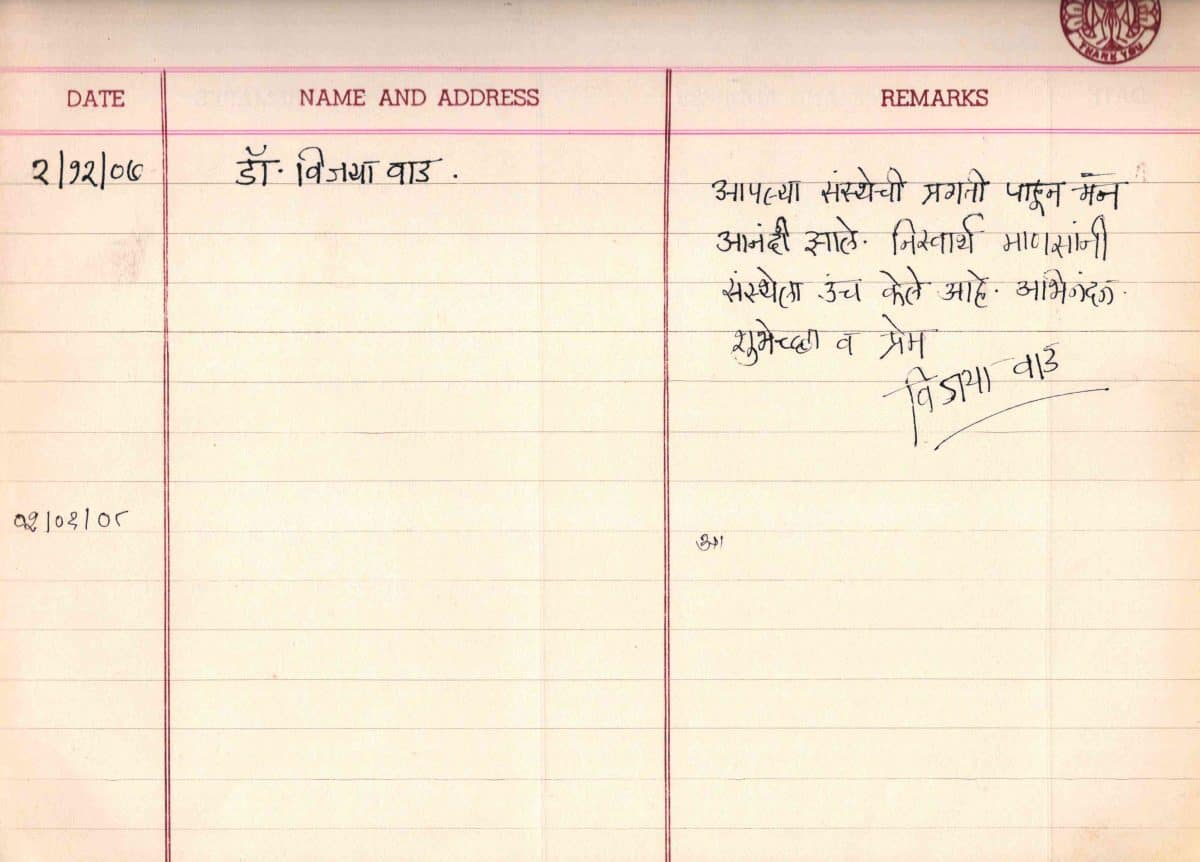 THANK YOU
DATE NAME AND ADDRESS REMARKS
२/१२/०७ डॉ. विजया वाड .
आपल्या संस्थेची प्रगती पाहून मन
आनंदी झाले. निस्वार्थ माणसांनी
संस्थेला उंच केले आहे. अभिनंदन.
शुभेच्छा व प्रेम
विजया वाड
०२/०३/०८